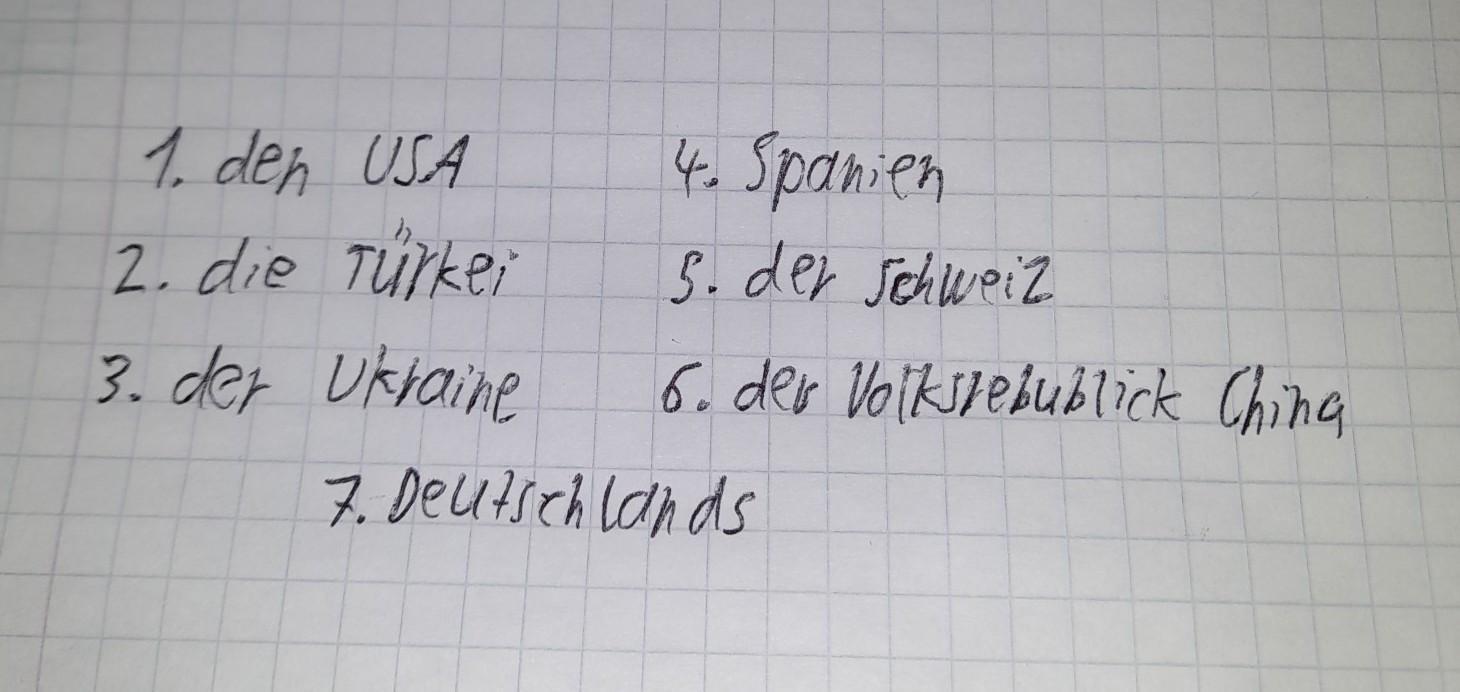 1. den USA
2. die Türkei
3. der Ukraine
4. Spanien
5. der Schweiz
6. der Volksrebublick China
7. Deutschlands